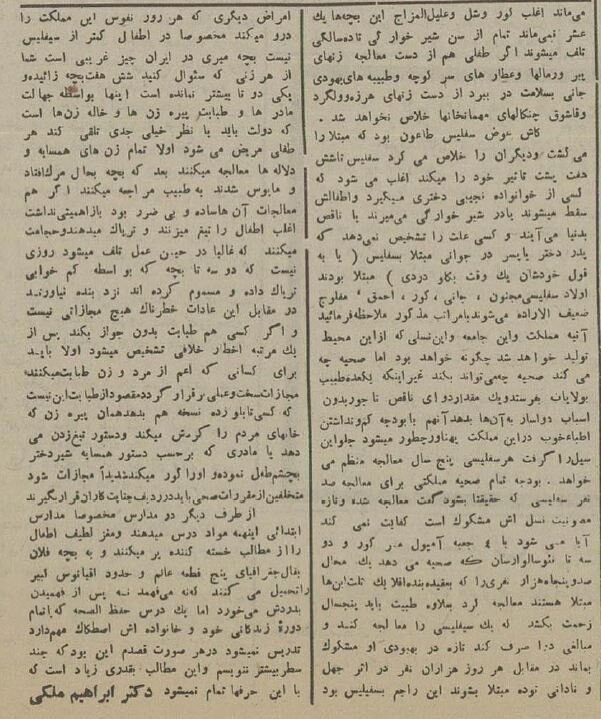 می‌ماند اغلب لور وشل وعلیل‌المزاج این بچه‌ها یك
عشر نمی‌ماند تمام از سن شیر خوارگی تاده‌سالگی
تلف میشوند اگر طفلی هم از دست معالجه زنهای
پیر ورمالها وعطار های سر کوچه وطبیبه های‌یهودی
جانی بسلامت در ببرد از دست زنهای هرزه‌ولگرد
وقاشوق چنکالهای مهمانخانها خلاص نخواهد شد .
کاش عوض سفلیس طاعون بود که مبتلا را
می کشت ودیگران را خلاص می کرد سفلیس تاشش
هفت پشت تاثیر خود را میکند اغلب می شود که
کسی از خوانواده نجیبی دختری میگیرد واطفالش
سقط میشوند یادر شیر خوارگی می‌میرند یا ناقص
بدنیا می‌آیند و کسی علت را تشخیص نمی‌دهد که
پدر دختر یاپسر در جوانی مبتلا بسفلیس ( یا به
قول خودشان یك وقت بکار دردی ) مبتلا بودند
اولاد سفلیسی‌مجنون ، جانی ، کور ، احمق ، مفلوج
ضعیف الاراده می‌شوند بامراتب مذکور ملاحظه‌فرمائید
آتیه مملکت واین جامعه واین‌نسلی که ازاین محیط
تولید خواهد شد چگونه خواهد بود اما صحیه چه
می کند صحیه چه‌می‌تواند بکند غیراینکه یکعده‌طبیب
بولایات بفرستدویك مقداردوای ناقص تاجوربدون
اسباب دواساز به‌آن‌ها بدهدآنهم بابودجه کم‌ونداشتن
اطباءخوب دراین مملکت پهناورچطور میشود جلواین
سیل‌را گرفت هرسفلیسی پنج سال معالجه منظم می
خواهد . بودجه تمام صحیه مملکتی برای معالجه صد
نفر سفلیسی که حقیقتا بشود گفت معالجه شده وتازه
مصونیت نسل اش مشکوك است کفایت نمی کند
آیا می شود با ٤ جعبه آمپول مرکور و دو
سه تا نئوسالوارسان که صحیه می دهد یك محال
صدوپنجاه‌هزار نفری‌را که بعقیده‌بنده‌اقلا یك ثلث‌این‌ها
مبتلا هستند معالجه کرد بعلاوه طبیب باید پنجسال
زحمت بکشد که یك سفیلیسی را معالجه کند و
مبالغی دوا صرف کند تازه در بهبودی او مشکوك
بماند در مقابل هر روز هزاران نفر در اثر جهل
و نادانی توده مبتلا بشوند این راجع بسفیلیس بود
امراض دیگری که هر روز نفوس این مملکت را
درو میکند مخصوصا در اطفال کمتر از سیفلیس
نیست بچه میری در ایران چیز غریبی است شما
از هر زنی که سئوال کنید شش هفت‌بچه زائیده‌و
یکی دو تا بیشتر نمانده است اینها بواسطه جهالت
مادر ها و طبابت پیره زن ها و خاله زن‌ها است
که دولت باید با نظر خیلی جدی تلقی کند هر
طفلی مریض می شود اولا تمام زن های همسایه و
دلاله ها معالجه میکنند بعد که بچه بحال مرك‌افتاد
و مایوس شدند به طبیب مراجعه میکنند اگر هم
معالجات آن هاساده و بی ضرر بود بازاهمیتی‌نداشت
اغلب اطفال را تیغ میزنند و تریاك میدهندوحجامت
میکنند که‌غالبا در حین عمل تلف میشود روزی
نیست که دو سه تا بچه که بواسطه کم خوابی
تریاك داده و مسموم کرده اند نزد بنده نیاورند
در مقابل این عادات خطرناك هیچ مجازاتی نیست
و اگر کسی هم طبابت بدون جواز بکند پس از
یك مرتبه اخطار خلافی تشخیص میشود اولا باید
برای کسانی که اعم از مرد و زن طبابت‌میکنند
مجازات‌سخت‌وعملی برقرار گرددمقصودازطبابت‌این‌نیست
که کسی‌تابلو زده نسخه هم بدهدهمان پیره زن که
خانهای مردم را گردش میکند ودستور تیغ‌زدن می
دهد یا مادری که برحسب دستور همسایه شیردختر
بچشم‌طفل نموده‌و اوراکور میکندشدیداً مجازات شود
متخلفین‌ازمقررات‌صحی‌بایددرردیف‌جنایت‌کاران‌قرارگیرند
از طرف دیگر دو مدارس مخصوصا مدارس
ابتدائی اینهمه مواد درس میدهند ومغز لطیف اطفال
رااز مطالب خسته کننده پر میکنند و به بچه فلان
بقال‌جغرافیای پنج قطعه عالم و حدود اقیانوس کبیر
راتحمیل می کنند که‌نه می‌فهمد نه پس از فهمیدن
بدردش می‌خورد اما یك درس حفظ الصحه که‌باتمام
دورهٔ زندگانی خود و خانواده اش اصطکاك مهم‌دارد
تدریس نمیشود درهر صورت قصدم این بود که چند
سطر بیشتر ننویسم واین مطالب بقدری زیاد است که
با این حرفها تمام نمیشود دکتر ابراهیم ملکی